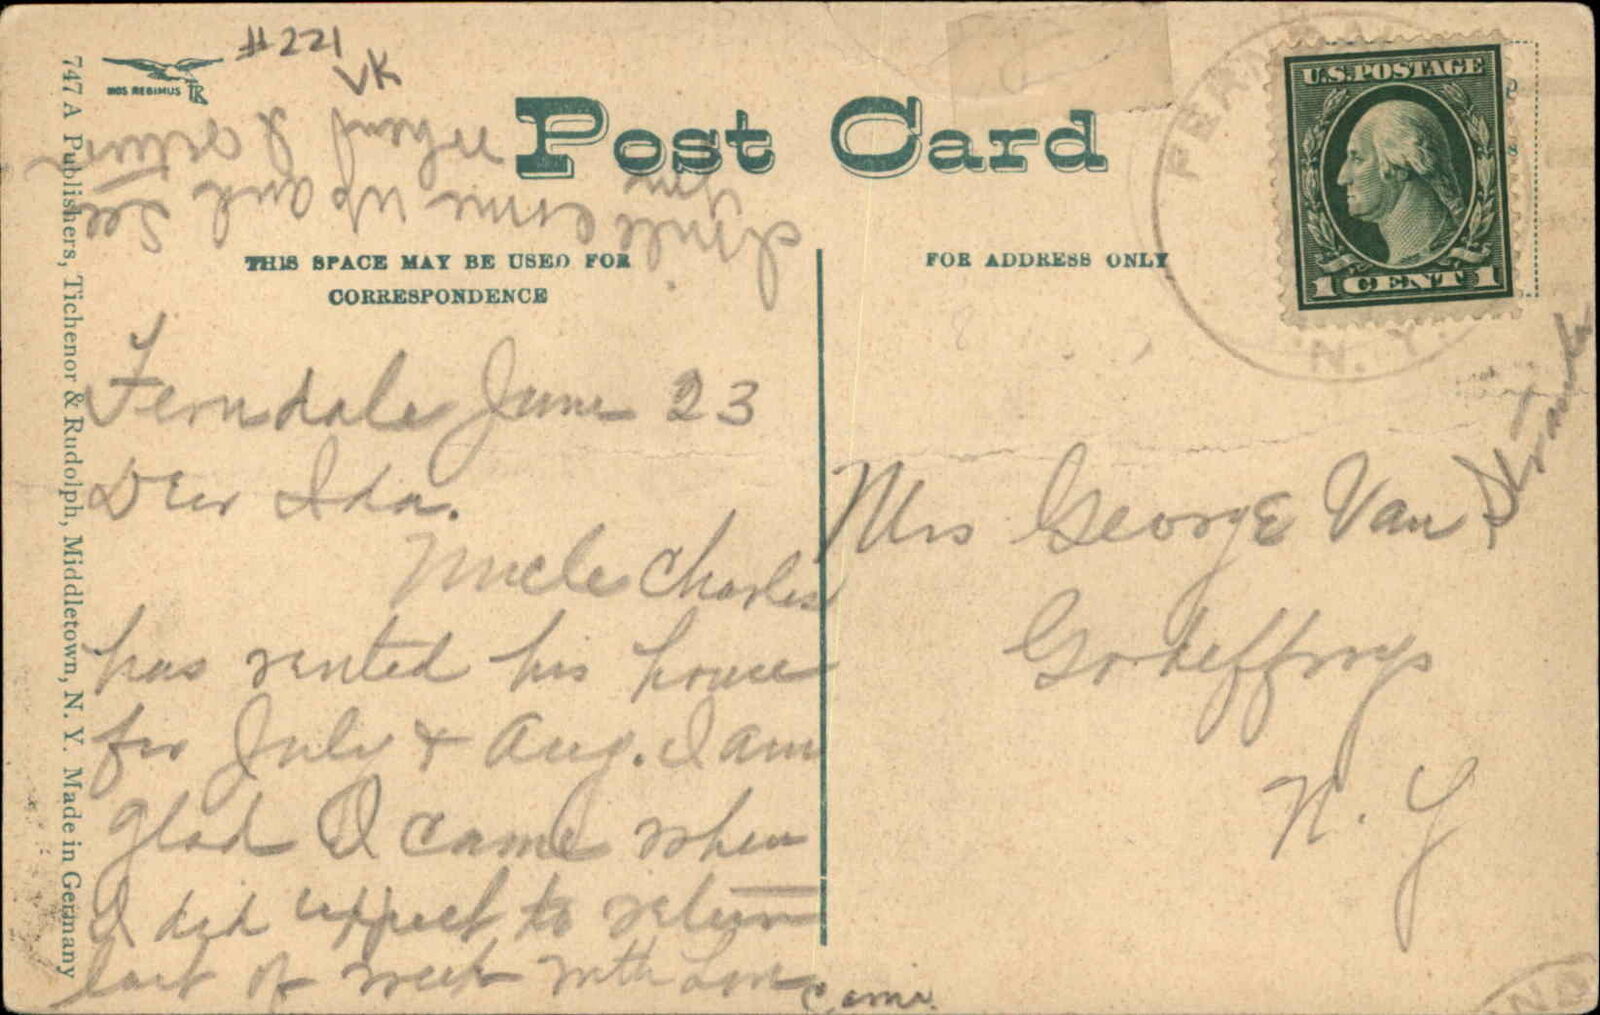 #221
VK
MOS REGIMUS TR
Post Card
U.S. POSTAGE
1 CENT 1
FERNDALE
N. Y.
THIS SPACE MAY BE USED FOR
CORRESPONDENCE
FOR ADDRESS ONLY
747 A Publishers, Tichenor & Rudolph, Middletown, N. Y. Made in Germany
Ferndale June 23
Dear Ida.
Uncle Charles
has rented his house
for July & Aug. I am
glad I came when
I did expect to return
last of week with Love
I will come up and see
you when I return
Mrs George Van
Godeffroys
N. Y